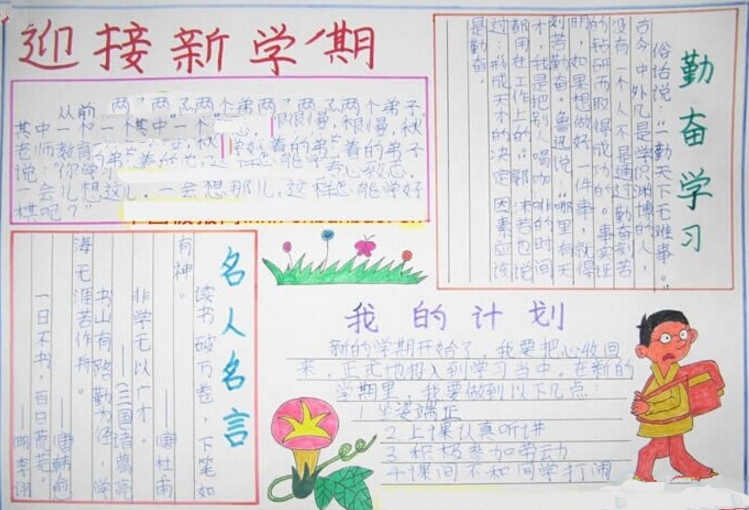 迎接新学期
从前
两个弟子
其中一个
很慢,秋
老师教育
说:你学
一会儿想这儿,一会想那儿,这样怎能学好
棋吧?”
勤奋学习
俗话说:“一勤天下无难事。”
古今中外凡是学识渊博的人,
没有一个人不是通过勤奋刻苦
的钻研而取得成功的。事实证
明,如果想做好一件事,就得
刻苦勤奋。鲁迅说:“哪里有天
才,我是把别人喝咖啡的时间
都用在工作上的”郭沫若也说
过:形成天才的决定因素应该
是勤奋。
名人名言
读书破万卷,下笔如
有神。
——(唐)杜甫
非学无以广才。
——(三国)诸葛亮
书山有路勤为径,学
海无涯苦作舟。
——(唐)韩愈
一日不书,百日荒芜。
——明李诩
我的计划
新的学期开始了,我要把心收回
来,正式地投入到学习当中。在新的
学期里,我要做到以下几点:
1 坐姿端正
2.上课认真听讲
3 积极参加劳动
4 课间不和同学打闹